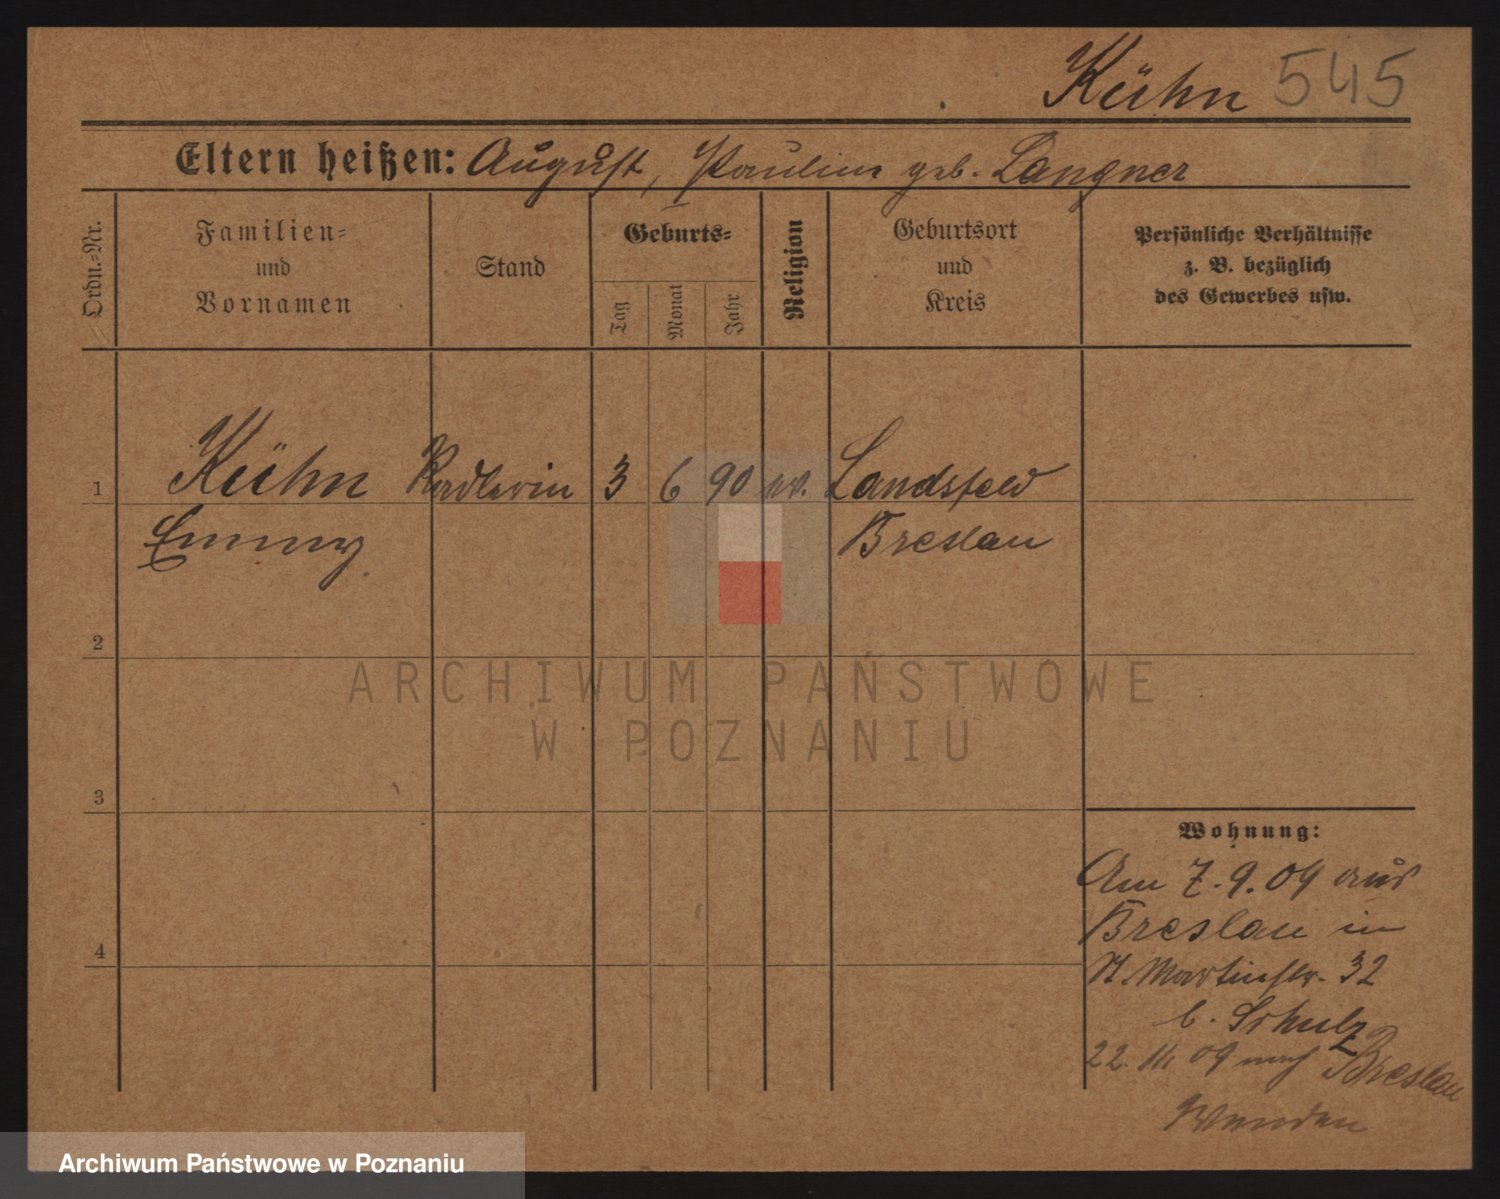 Kühn 545
Eltern heißen: August, Pauline geb. Langner
Ordn.-Nr.
Familien-
und
Vornamen
Stand
Geburts-
Tag
Monat
Jahr
Religion
Geburtsort
und
Kreis
Persönliche Verhältnisse
z. B. bezüglich
des Gewerbes usw.
1 Kühn Radlerin 3 6 90 ev. Landsfeld
Emmy Breslau
2
3
4
Wohnung:
Am 7.9.09 aus
Breslau in
St. Martinstr. 32
b. Schulz
22. 11. 09 nach Breslau
ARCHIWUM PAŃSTWOWE
W POZNANIU
Archiwum Państwowe w Poznaniu